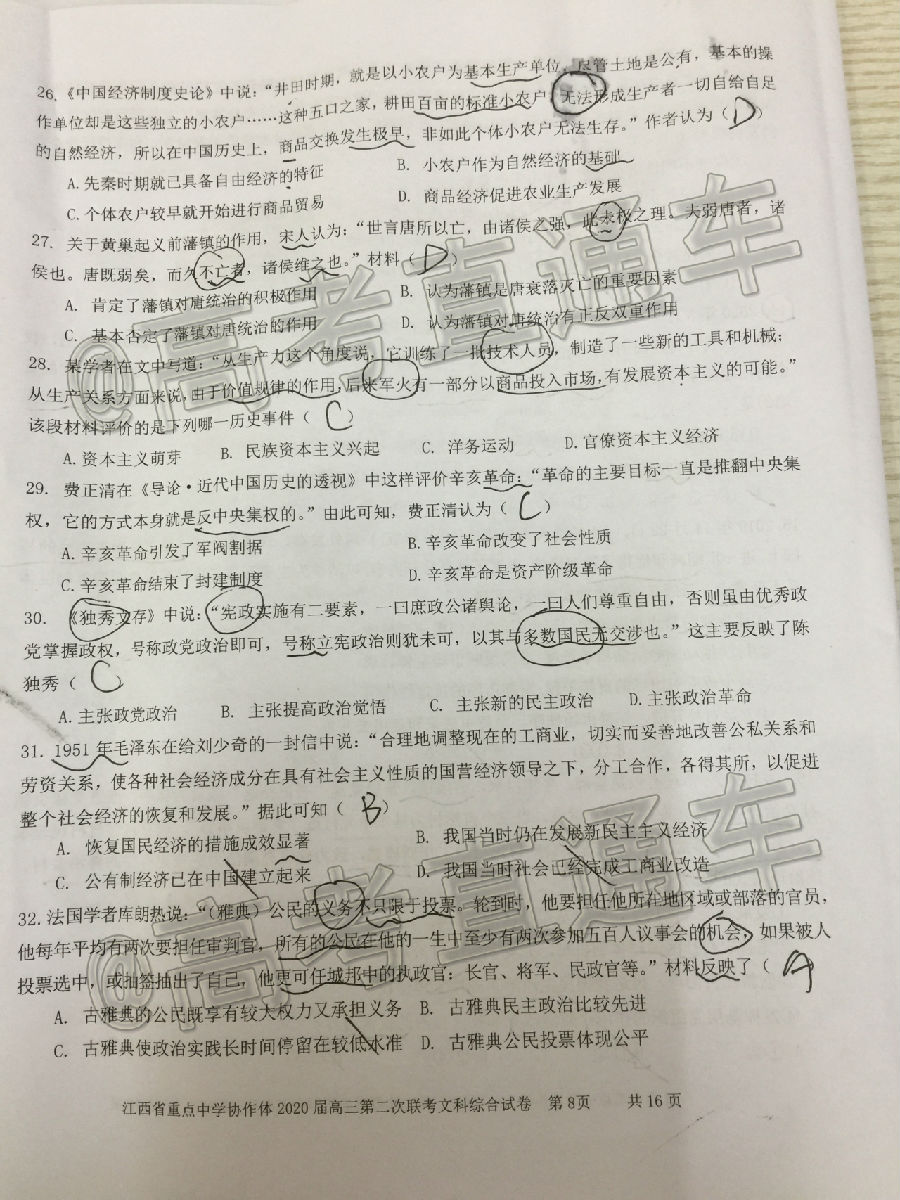 26.《中国经济制度史论》中说：“井田时期，就是以小农户为基本生产单位，尽管土地是公有，基本的操
作单位却是这些独立的小农户……这种五口之家，耕田百亩的标准小农户，无法形成生产者一切自给自足
的自然经济，所以在中国历史上，商品交换发生极早，非如此个体小农户无法生存。”作者认为（D）
A.先秦时期就已具备自由经济的特征 B. 小农户作为自然经济的基础
C.个体农户较早就开始进行商品贸易 D. 商品经济促进农业生产发展
27. 关于黄巢起义前藩镇的作用，宋人认为：“世言唐所以亡，由诸侯之强，此未极之理。夫弱唐者，诸
侯也。唐既弱矣，而久不亡者，诸侯维之也。”材料（D）
A. 肯定了藩镇对唐统治的积极作用 B. 认为藩镇是唐衰落灭亡的重要因素
C. 基本否定了藩镇对唐统治的作用 D. 认为藩镇对唐统治有正反双重作用
28. 某学者在文中写道：“从生产力这个角度说，它训练了一批技术人员，制造了一些新的工具和机械；
从生产关系方面来说，由于价值规律的作用，后来军火有一部分以商品投入市场，有发展资本主义的可能。”
该段材料评价的是下列哪一历史事件（C）
A.资本主义萌芽 B. 民族资本主义兴起 C. 洋务运动 D.官僚资本主义经济
29. 费正清在《导论·近代中国历史的透视》中这样评价辛亥革命：“革命的主要目标一直是推翻中央集
权，它的方式本身就是反中央集权的。”由此可知，费正清认为（C）
A.辛亥革命引发了军阀割据 B.辛亥革命改变了社会性质
C.辛亥革命结束了封建制度 D.辛亥革命是资产阶级革命
30. 《独秀文存》中说：“宪政实施有二要素，一曰庶政公诸舆论，一曰人们尊重自由，否则虽由优秀政
党掌握政权，号称政党政治即可，号称立宪政治则犹未可，以其与多数国民无交涉也。”这主要反映了陈
独秀（C）
A.主张政党政治 B. 主张提高政治觉悟 C. 主张新的民主政治 D.主张政治革命
31. 1951年毛泽东在给刘少奇的一封信中说：“合理地调整现在的工商业，切实而妥善地改善公私关系和
劳资关系，使各种社会经济成分在具有社会主义性质的国营经济领导之下，分工合作，各得其所，以促进
整个社会经济的恢复和发展。”据此可知（B）
A. 恢复国民经济的措施成效显著 B. 我国当时仍在发展新民主主义经济
C. 公有制经济已在中国建立起来 D. 我国当时社会已经完成工商业改造
32.法国学者库朗热说：“（雅典）公民的义务不只限于投票。轮到时，他要担任他所在地区域或部落的官员，
他每年平均有两次要担任审判官，所有的公民在他的一生中至少有两次参加五百人议事会的机会，如果被人
投票选中，或抽签抽出了自己，他更可任城邦中的执政官：长官、将军、民政官等。”材料反映了（A
A. 古雅典的公民既享有较大权力又承担义务 B. 古雅典民主政治比较先进
C. 古雅典使政治实践长时间停留在较低水准 D. 古雅典公民投票体现公平
江西省重点中学协作体2020届高三第二次联考文科综合试卷 第8页 共16页
@高考直通车
@高考直通车